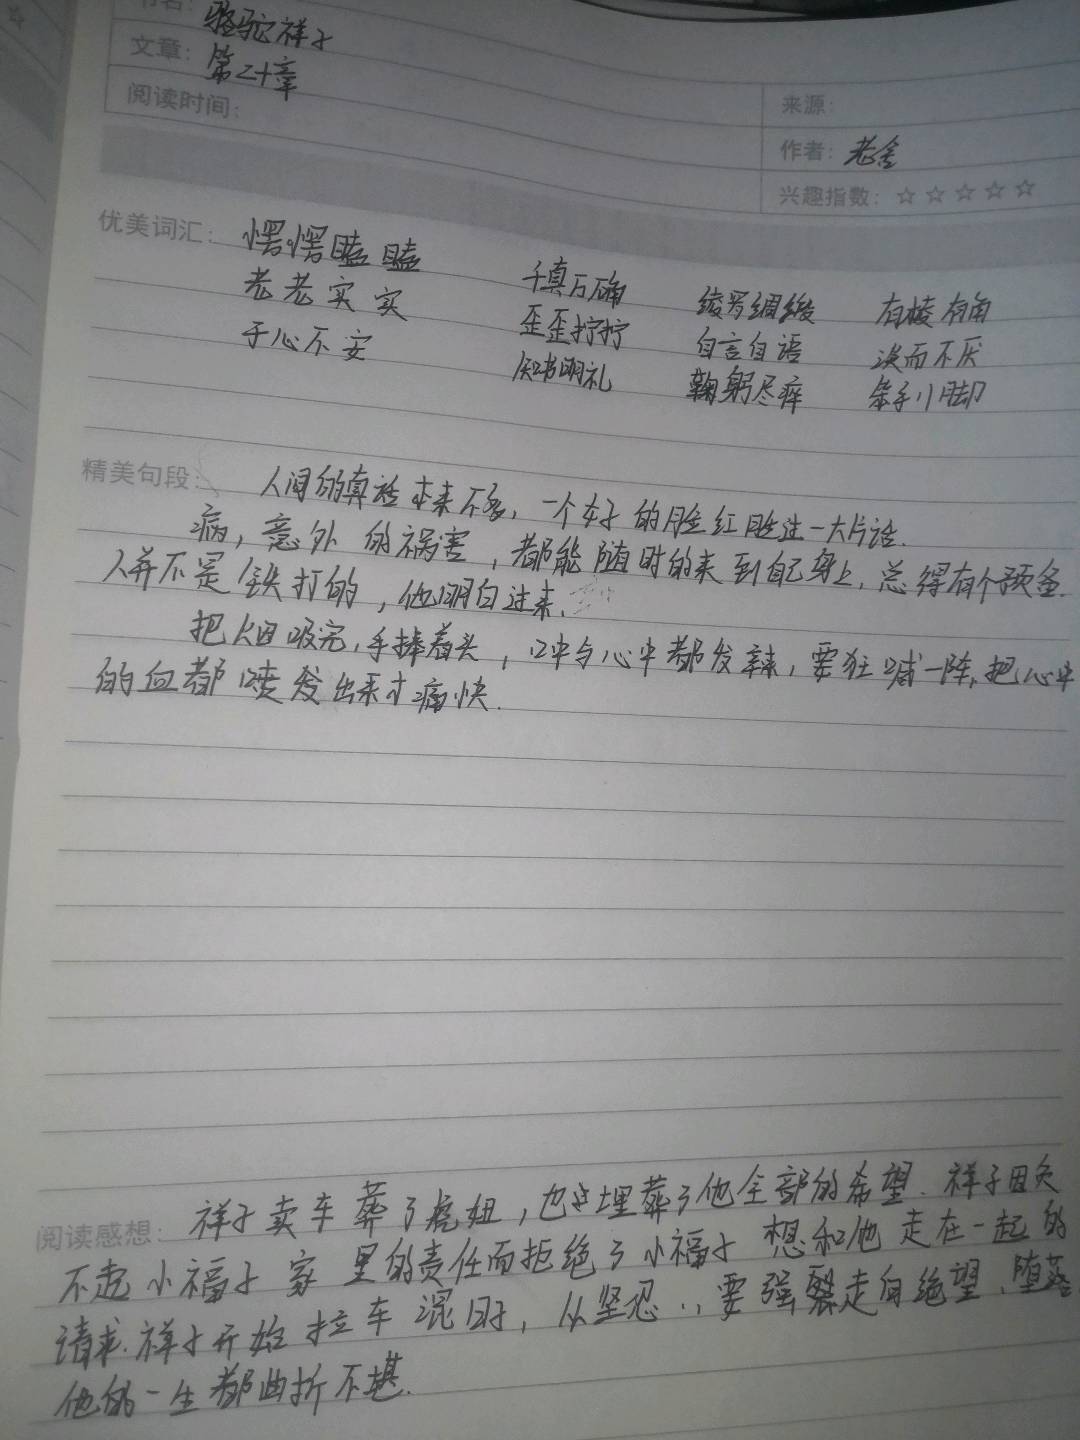 书名：骆驼祥子
文章：第二十章
阅读时间：
来源：
作者：老舍
兴趣指数：☆☆☆☆☆
优美词汇：愣愣瞌瞌 千真万确 绫罗绸缎 有棱有角
老老实实 歪歪拧拧 自言自语 淡而不厌
于心不安 知书明礼 鞠躬尽瘁 笨手八脚
精美句段：人间的真话本来不多，一个女子的脸红胜过一大片话.
病，意外的祸害，都能随时的来到自己身上，总得有个预备.
人并不是铁打的，他明白过来.
把烟吸完，手捧着头，口中与心中都发辣，要狂喊一阵，把心中
的血都喷发出来才痛快.
阅读感想：祥子卖车葬了虎妞，也埋葬了他全部的希望.祥子因负
不起小福子家里的责任而拒绝了小福子想和他走在一起的
请求.祥子开始拉车混日子，从坚忍、要强走向绝望、堕落
他的一生都曲折不堪.